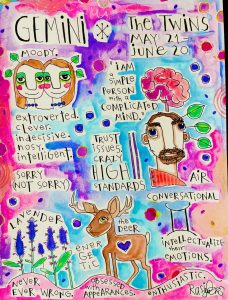 GEMINI
The Twins
MAY 21-
JUNE 20
MOODY.
"I AM
a
simple
person
with a
complicated
mind."
extroverted.
clever.
indecisive.
nosy.
intelligent.
TRUST
ISSUES.
CRAZY
HIGH
STANDARDS
SORRY
NOT SORRY
AIR
CONVERSATIONAL
LAVENDER
the
DEER
ENER
GE
TIC
intellectualize
their
emotions.
never
ever wrong.
obsessed with
appearances.
enthusiastic.